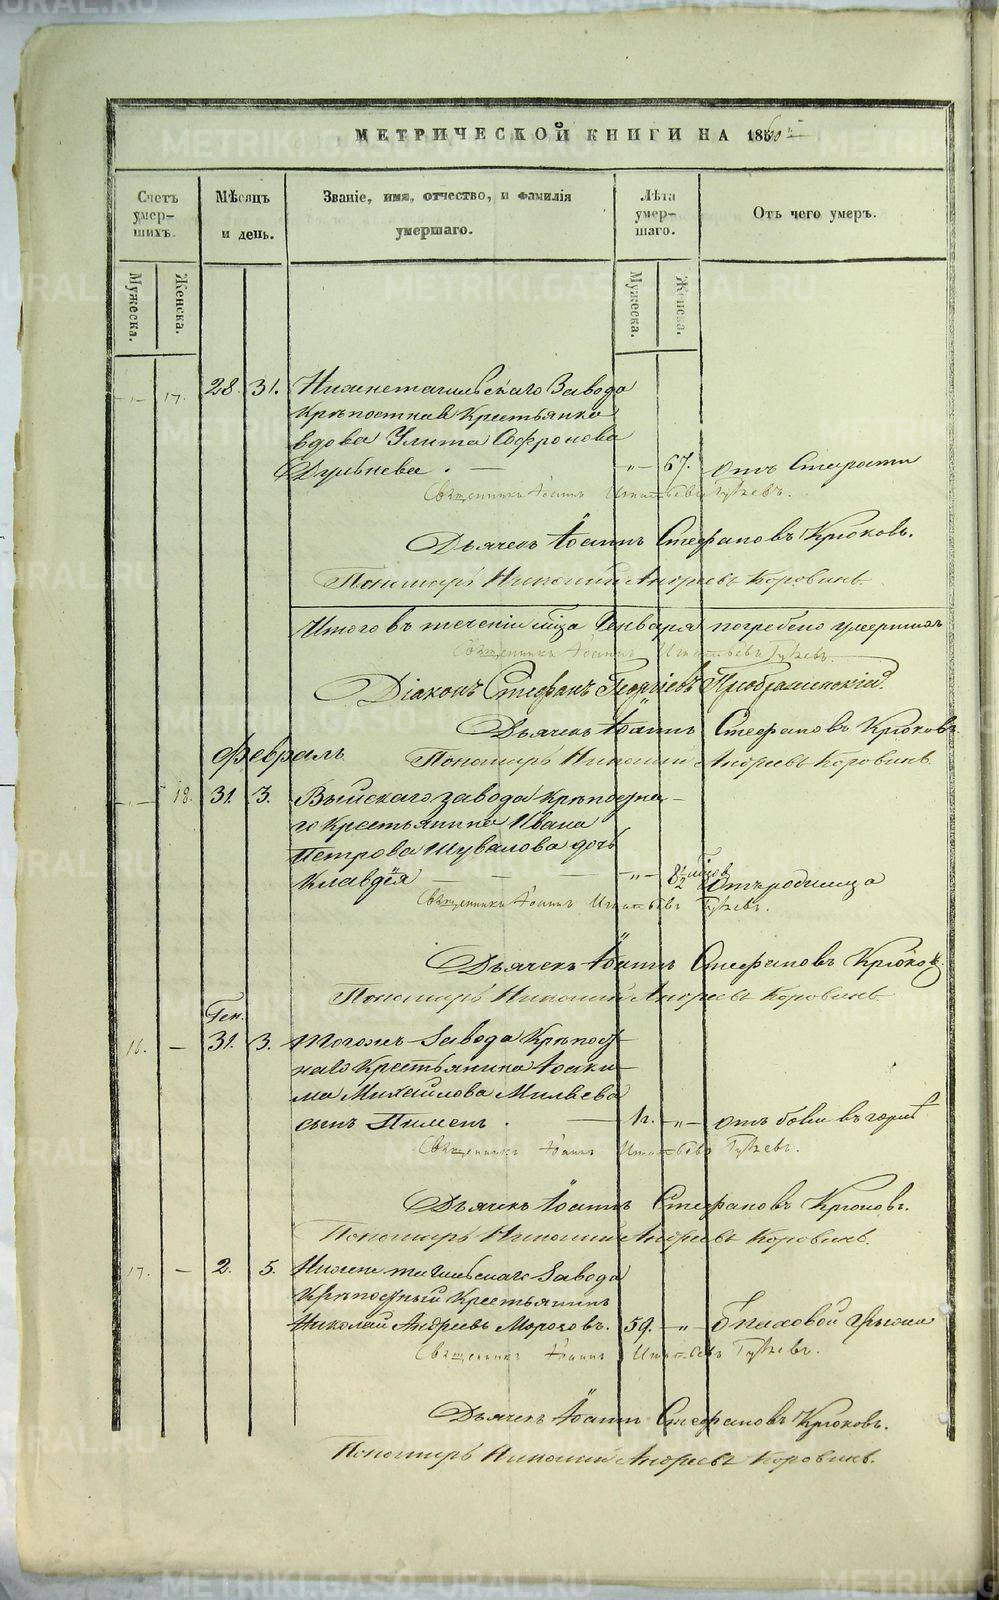 МЕТРИЧЕСКОЙ КНИГИ НА 1860й
Счетъ умер-шихъ.
Мѣсяцъ и день.
Званіе, имя, отчество, и фамилія умершаго.
Лѣта умер-шаго.
Отъ чего умеръ.
Мужеска.
Женска.
Мужеска.
Женска.
17. 28. 31. Нижнетагильскаго Завода
Крѣпостная Крестьянка
вдова Улита Софронова
" 67. Отъ Старости
Священникъ Іоаннъ Игнатьевъ
Дьячекъ Іоаннъ Стефановъ Крюковъ.
Пономарь Николай Андреевъ Коровинъ
Итого въ теченіи мѣца Генваря погребено умершихъ
Священникъ Іоаннъ Игнатьевъ
Діаконъ Стефанъ Георгіевъ Преображенскій.
Дьячекъ Іоаннъ Стефановъ Крюковъ
Февраль
Пономарь Николай Андреевъ Коровинъ.
18. 31. 3. Выйскаго завода Крѣпостна-
го Крестьянина Ивана
Петрова Шувалова дочь
Клавдія " 8½ мѣцов Отъ родимца
Священникъ Іоаннъ Игнатьевъ
Дьячекъ Іоаннъ Стефановъ Крюковъ.
Пономарь Николай Андреевъ Коровинъ
Ген.
16. — 31. 3. Тогожъ Завода Крѣпост-
наго Крестьянина Іоаки-
ма Михайлова
сынъ Пименъ. 1г. " отъ боли въ горлѣ
Священникъ Іоаннъ Игнатьевъ
Дьячекъ Іоаннъ Стефановъ Крюковъ.
Пономарь Николай Андреевъ Коровинъ.
17. — 2. 5. Нижнетагильскаго Завода
Крѣпостный Крестьянинъ
Николай Андреевъ Морозовъ. 59. "
Священникъ Іоаннъ Игнатьевъ
Дьячекъ Іоаннъ Стефановъ Крюковъ.
Пономарь Николай Андреевъ Коровинъ.
METRIKI.GASO-URAL.RU